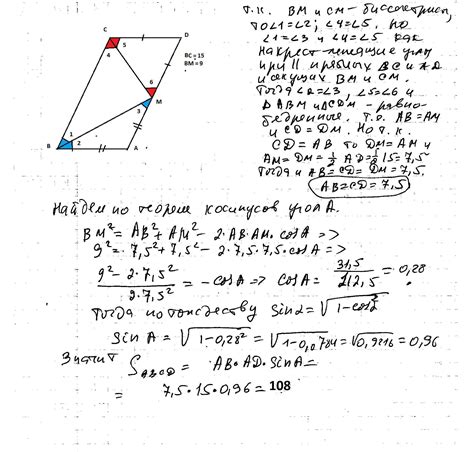 C
D
5
4
BC = 15
BM = 9
6
M
3
1
2
B
A
т.к. BM и CM - биссектрисы,
то ∠1=∠2; ∠4=∠5. но
∠1=∠3 и ∠4=∠5 как
накрест-лежащие углы
при || прямых BC и AD
и секущих BM и CM.
Тогда ∠2=∠3, ∠5=∠6 и
△ABM и △CDM - равно-
бедренные. Т.о. AB=AM
и CD=DM. Но т.к.
CD=AB то DM=AM и
AM=DM=½AD=½15=7,5
Тогда и AB=CD=DM=7,5.
AB=CD=7,5
Найдем по теореме косинусов угол A.
BM²=AB²+AM²-2·AB·AM·cosA =>
9²=7,5²+7,5²-2·7,5·7,5·cosA =>
9²-2·7,5² / 2·7,5² = -cosA => cosA = 31,5 / 112,5 = 0,28
Тогда по тождеству sinα=√1-cos²
sinA=√1-0,28²=√1-0,0784=√0,9216=0,96
Значит S ABCD = AB·AD·sinA=
=7,5·15·0,96=108